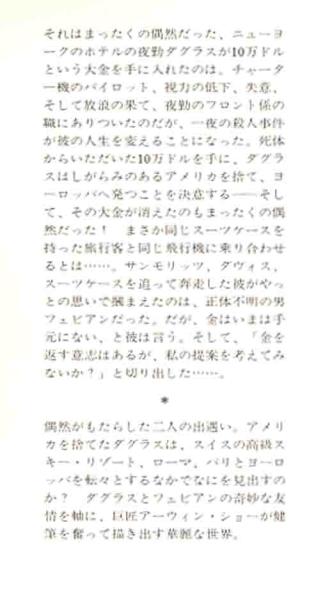 それはまったくの偶然だった、ニューヨ
ークのホテルの夜勤ダグラスが10万ドル
という大金を手に入れたのは。チャータ
ー機のパイロット、視力の低下、失意、
そして放浪の果て、夜勤のフロント係の
職にありついたのだが、一夜の殺人事件
が彼の人生を変えることになった。死体
からいただいた10万ドルを手に、ダグラ
スはしがらみのあるアメリカを捨て、ヨ
ーロッパへ発つことを決意する——そし
て、その大金が消えたのもまったくの偶
然だった！　まさか同じスーツケースを
持った旅行客と同じ飛行機に乗り合わせ
るとは……。サンモリッツ、ダヴォス、
スーツケースを追って奔走した彼がやっ
との思いで摑まえたのは、正体不明の男
フェビアンだった。だが、金はいまは手
元にない、と彼は言う。そして、「金を
返す意志はあるが、私の提案を考えてみ
ないか？」と切り出した……。
*
偶然がもたらした二人の出遇い。アメリ
カを捨てたダグラスは、スイスの高級ス
キー・リゾート、ローマ、パリとヨーロ
ッパを転々とするなかでなにを見出すの
か？　ダグラスとフェビアンの奇妙な友
情を軸に、巨匠アーウィン・ショーが健
筆を奮って描き出す華麗な世界。